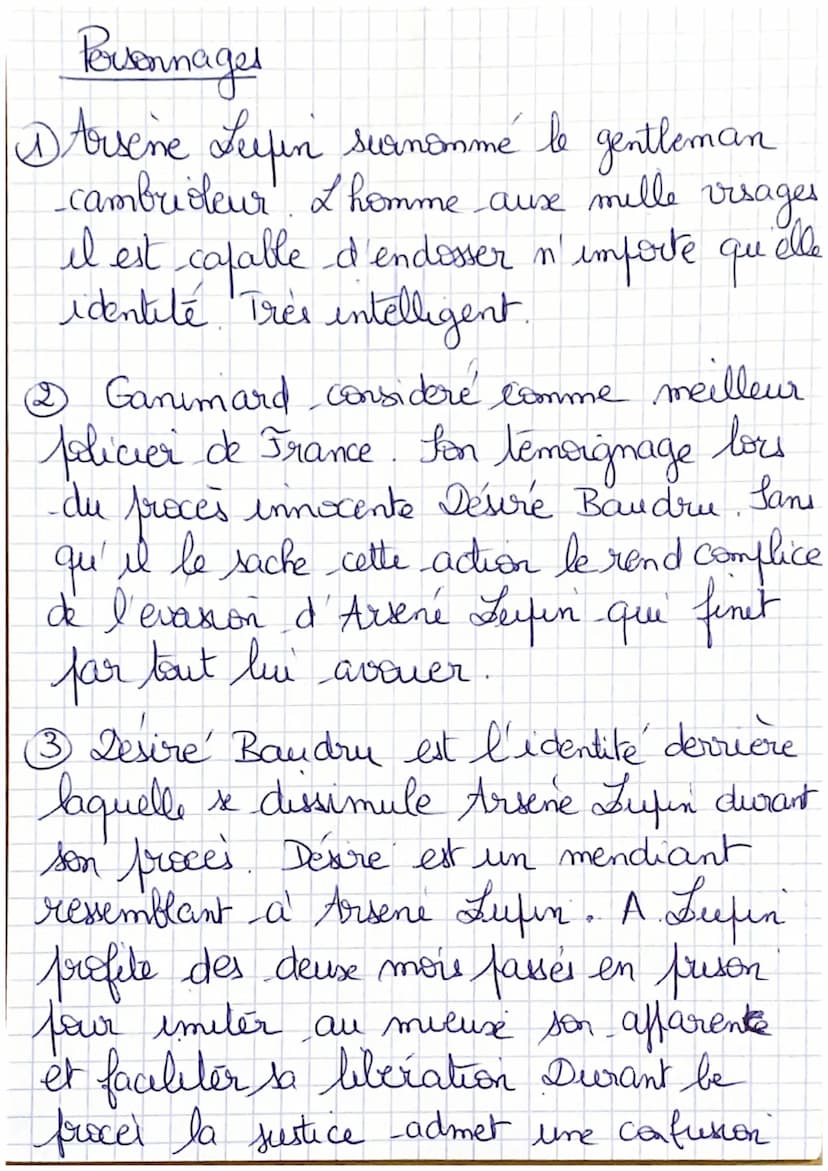 Personnages
① Arsène Lupin surnommé le gentleman
cambrioleur. L'homme aux mille visages
il est capable d'endosser n'importe qu'elle
identité. Très intelligent.
② Ganimard considéré comme meilleur
policier de France. Son témoignage lors
du procès innocente Désiré Baudru. Sans
qu'il le sache cette action le rend complice
de l'evasion d'Arsene Lupin qui finit
par tout lui avouer.
③ Désiré Baudru est l'identité derrière
laquelle se dissimule Arsène Lupin durant
son procès. Désiré est un mendiant
ressemblant à Arsene Lupin. A. Lupin
profite des deux mois passés en prison
pour imiter au mieux son apparence
et faciliter sa libération Durant le
procès la justice admet une confusion